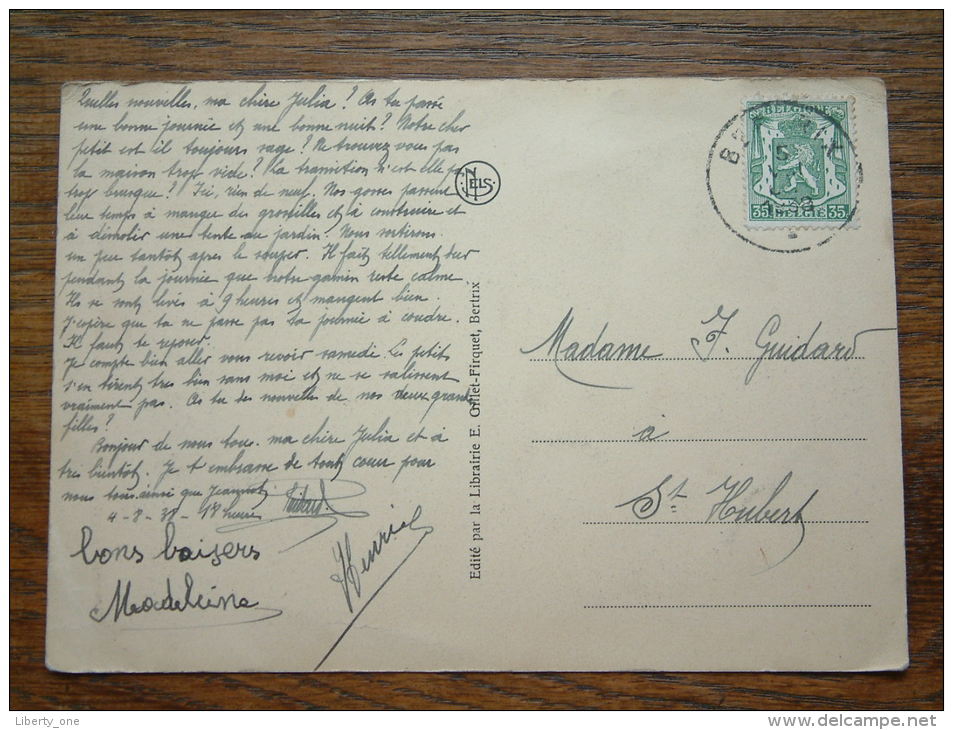 Quelles nouvelles, ma chère Julia ? As tu passé
une bonne journée et une bonne nuit ? Notre cher
petit est il toujours sage ? Ne trouvez vous pas
la maison trop vide ? La transition n'est elle pas
trop brusque ? Ici, rien de neuf. Nos gosses passent
leur temps à manger des groseilles et à construire et
à démolir une tente au jardin ! Nous sortirons
un peu tantôt après le souper. Il fait tellement
pendant la journée que notre gamin reste calme.
Ils se sont levés à 9 heures et mangent bien.
J'espère que tu ne passe pas ta journée à coudre.
Il faut te reposer.
Je compte bien aller vous revoir samedi. Les petits
s'en tirent très bien sans moi et ne se salissent
vraiment pas. As tu des nouvelles de nos deux grandes
filles ?
Bonjour de nous tous, ma chère Julia et à
très bientôt. Je t'embrasse de tout coeur pour
nous tous ainsi que
4-8-38 - 18 heures
bons baisers
Madeleine
Henri
ELS
Edité par la Librairie E. Gillet-Firquet, Bertrix
BELGIQUE
35 BELGIE 35
Madame J. Guidard
a
St Hubert
Liberty_one
http://www.delcampe.net